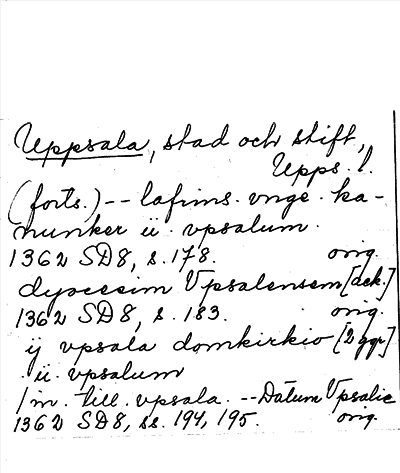 Uppsala, stad och stift,
Upps. l.
(forts.) -- lafrins. vnge. ka-
nunker ü. vpsalum.
1362 SD8, s. 178. orig.
dyocesim Vpsalensem [ack.]
1362 SD8, s. 183. orig.
ÿ vpsala domkirkio [2 ggr]
ü. vpsalum
/m. till. vpsala. -- Datum Vpsalie
1362 SD8, ss. 194, 195. orig.